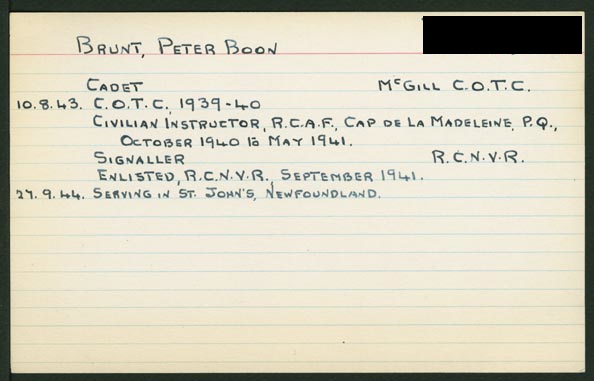 BRUNT, PETER BOON
CADET McGILL C.O.T.C.
10.8.43. C.O.T.C., 1939-40
CIVILIAN INSTRUCTOR, R.C.A.F., CAP DE LA MADELEINE, P.Q.,
OCTOBER 1940 to MAY 1941.
SIGNALLER R.C.N.V.R.
ENLISTED, R.C.N.V.R., SEPTEMBER 1941.
27.9.44. SERVING IN ST. JOHN'S, NEWFOUNDLAND.